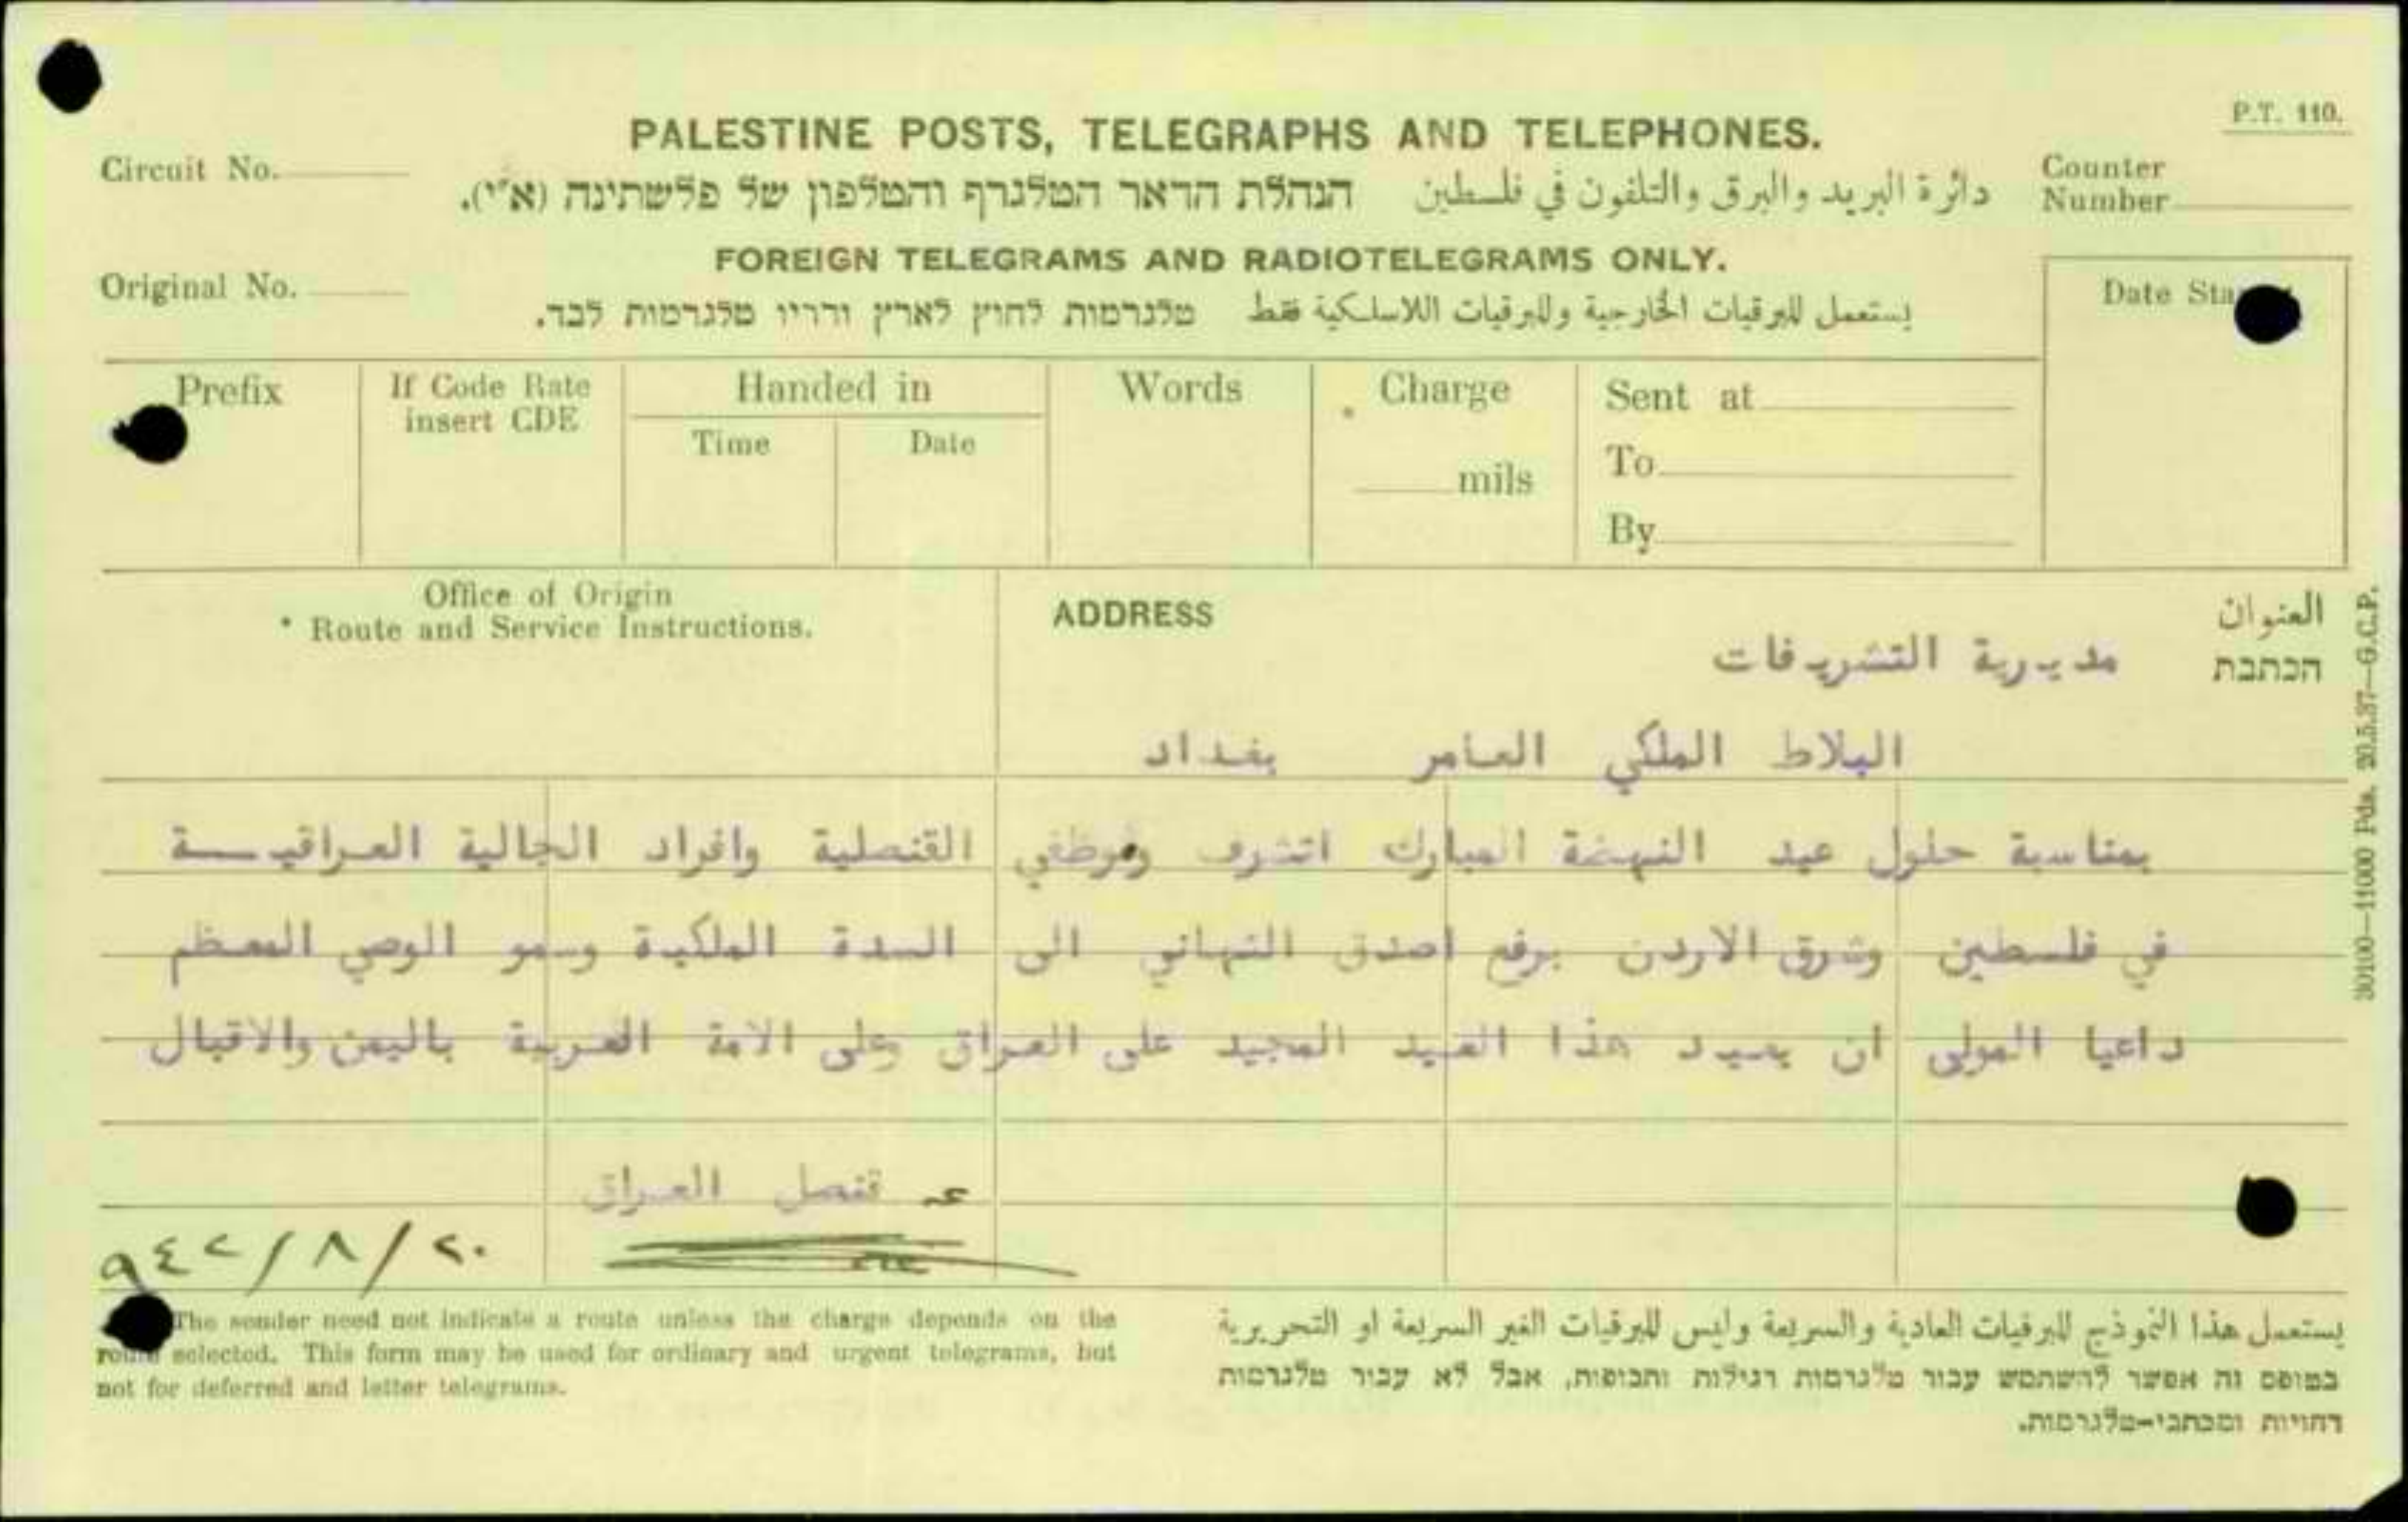 P.T. 110.
PALESTINE POSTS, TELEGRAPHS AND TELEPHONES.
Circuit No.
Counter Number
دائرة البريد والبرق والتلفون في فلسطين הנהלת הדאר הטלגרף והטלפון של פלשתינה (א״י).
FOREIGN TELEGRAMS AND RADIOTELEGRAMS ONLY.
Original No.
Date Sta
يستعمل للبرقيات الخارجية وللبرقيات اللاسلكية فقط טלגרמות לחוץ לארץ ורדיו טלגרמות לבד.
Prefix
If Code Rate insert CDE
Handed in
Time
Date
Words
Charge
mils
Sent at
To
By
Office of Origin
* Route and Service Instructions.
ADDRESS
العنوان
הכתבת
مديرية التشريفات
البلاط الملكي العامر بغداد
بمناسبة حلول عيد النهضة المبارك اتشرف وموظفي القنصلية وافراد الجالية العراقيــة
في فلسطين وشرق الاردن برفع اصدق التهاني الى السدة الملكية وسمو الوصي المعظم
داعيا المولى ان يعيد هذا العيد المجيد على العراق وعلى الامة العربية باليمن والاقبال
عـ قنصل العراق
٢٠/٨/٩٤٢
The sender need not indicate a route unless the charge depends on the
route selected. This form may be used for ordinary and urgent telegrams, but
not for deferred and letter telegrams.
يستعمل هذا النموذج للبرقيات العادية والسريعة وليس للبرقيات الغير السريعة او التحريرية
בטופס זה אפשר להשתמש עבור טלגרמות רגילות ותכופות, אבל לא עבור טלגרמות
דחויות ומכתבי-טלגרמות.
30100—11000 Pds. 20.5.37—G.C.P.